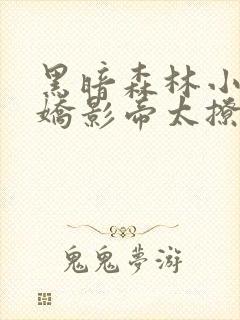 黑暗森林小
嬌影帝太撩
鬼鬼夢游